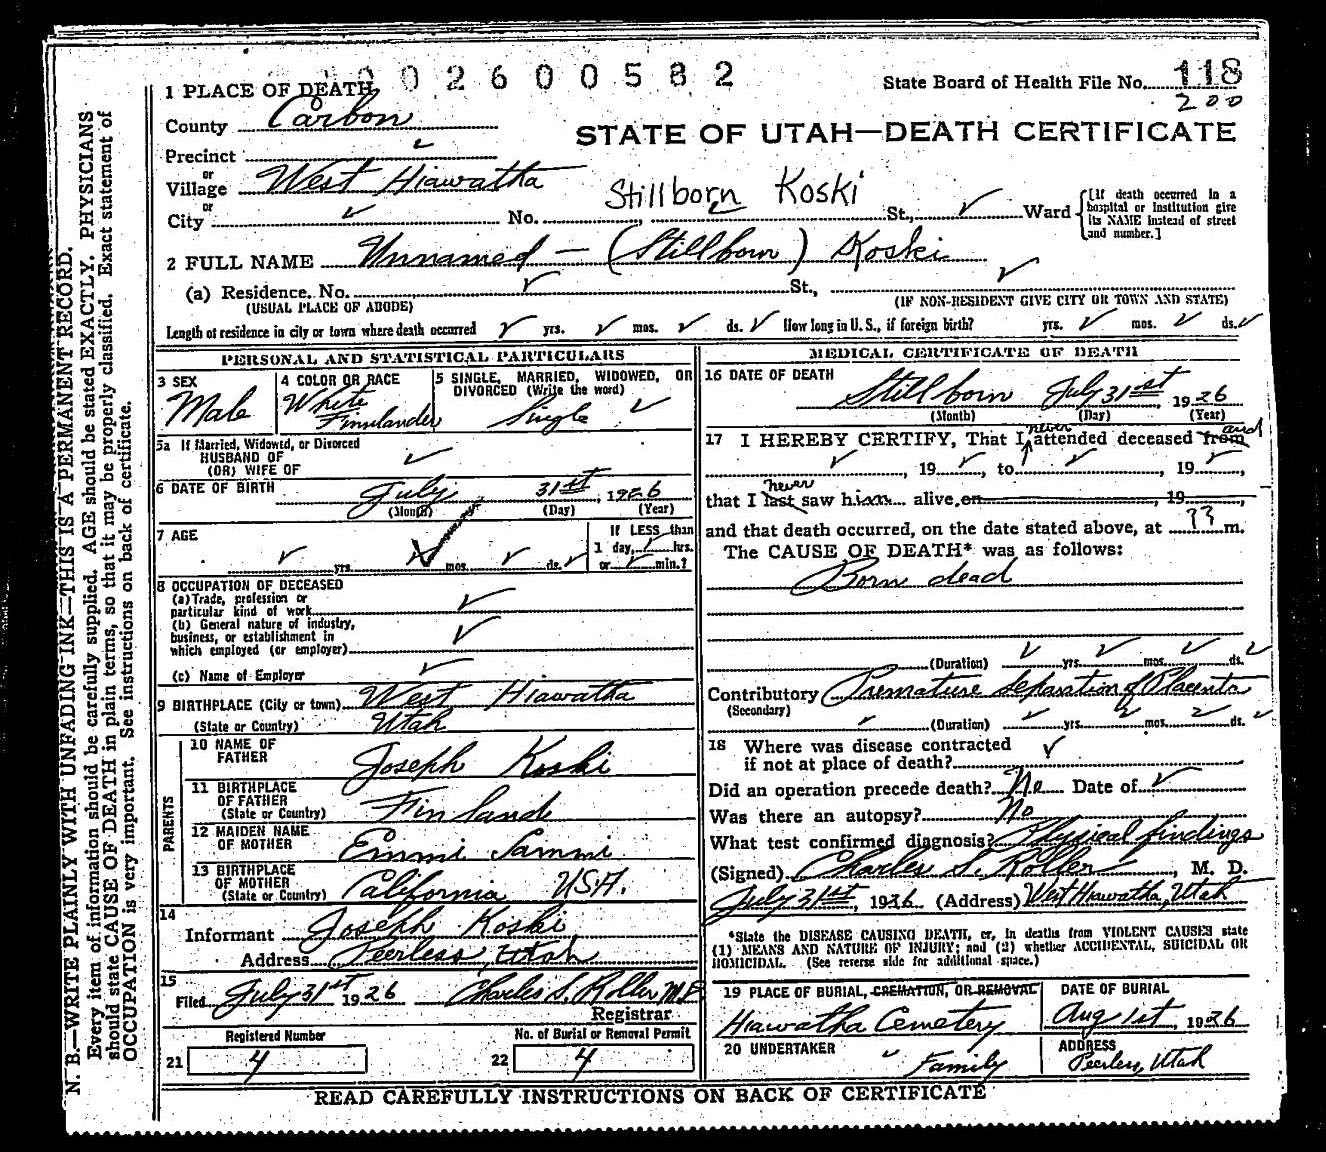 002600582
State Board of Health File No. 118
200
1 PLACE OF DEATH
County Carbon
STATE OF UTAH—DEATH CERTIFICATE
Precinct ✓
or
Village West Hiawatha
Stillborn Koski
or
City ✓ No. ✓ St., ✓ Ward
[If death occurred in a hospital or institution give its NAME instead of street and number.]
2 FULL NAME Unnamed — (Stillborn) Koski
(a) Residence. No. ✓ St., ✓
(USUAL PLACE OF ABODE) (IF NON-RESIDENT GIVE CITY OR TOWN AND STATE)
Length of residence in city or town where death occurred ✓ yrs. ✓ mos. ✓ ds. ✓ How long in U. S., if foreign birth? yrs. ✓ mos. ✓ ds. ✓
PERSONAL AND STATISTICAL PARTICULARS
3 SEX
Male
4 COLOR OR RACE
White
Finnlander
5 SINGLE, MARRIED, WIDOWED, OR
DIVORCED (Write the word)
Single ✓
5a If Married, Widowed, or Divorced
HUSBAND OF
(OR) WIFE OF ✓
6 DATE OF BIRTH July 31st, 1926
(Month) (Day) (Year)
7 AGE
If LESS than
1 day, ✓ hrs.
✓ yrs. ✓ mos. ✓ ds. ✓ or ✓ min.?
8 OCCUPATION OF DECEASED
(a) Trade, profession or
particular kind of work ✓
(b) General nature of industry,
business, or establishment in
which employed (or employer) ✓
(c) Name of Employer ✓
9 BIRTHPLACE (City or town) West Hiawatha
(State or Country) Utah
PARENTS
10 NAME OF
FATHER Joseph Koski
11 BIRTHPLACE
OF FATHER
(State or Country) Finland
12 MAIDEN NAME
OF MOTHER Emmi Sammi
13 BIRTHPLACE
OF MOTHER
(State or Country) California U.S.A.
14
Informant Joseph Koski
Address Peerless, Utah
15
Filed July 31st 1926 Charles S. Roller M.D.
Registrar
Registered Number
21 4
No. of Burial or Removal Permit
22 4
MEDICAL CERTIFICATE OF DEATH
16 DATE OF DEATH
Stillborn July 31st 1926
(Month) (Day) (Year)
17 I HEREBY CERTIFY, That I never attended deceased from and
✓, 19 ✓, to ✓, 19 ✓,
that I last never saw him alive on, 19,
and that death occurred, on the date stated above, at ?? m.
The CAUSE OF DEATH* was as follows:
Born dead
(Duration) ✓ yrs. ✓ mos. ✓ ds. ✓
Contributory Premature Separation of Placenta
(Secondary)
✓ (Duration) ✓ yrs. ✓ mos. ✓ ds. ✓
18 Where was disease contracted
if not at place of death? ✓
Did an operation precede death? No Date of ✓
Was there an autopsy? No
What test confirmed diagnosis? Physical findings
(Signed) Charles S. Roller, M. D.
July 31st, 1926 (Address) West Hiawatha, Utah
*State the DISEASE CAUSING DEATH, or, in deaths from VIOLENT CAUSES state
(1) MEANS AND NATURE OF INJURY; and (2) whether ACCIDENTAL, SUICIDAL OR
HOMICIDAL. (See reverse side for additional space.)
19 PLACE OF BURIAL, CREMATION, OR REMOVAL
Hiawatha Cemetery
DATE OF BURIAL
Aug 1st, 1926
20 UNDERTAKER ✓ Family
ADDRESS
Peerless, Utah
READ CAREFULLY INSTRUCTIONS ON BACK OF CERTIFICATE
N. B.—WRITE PLAINLY WITH UNFADING INK—THIS IS A PERMANENT RECORD.
Every item of information should be carefully supplied. AGE should be stated EXACTLY. PHYSICIANS
should state CAUSE OF DEATH in plain terms, so that it may be properly classified. Exact statement of
OCCUPATION is very important. See instructions on back of certificate.